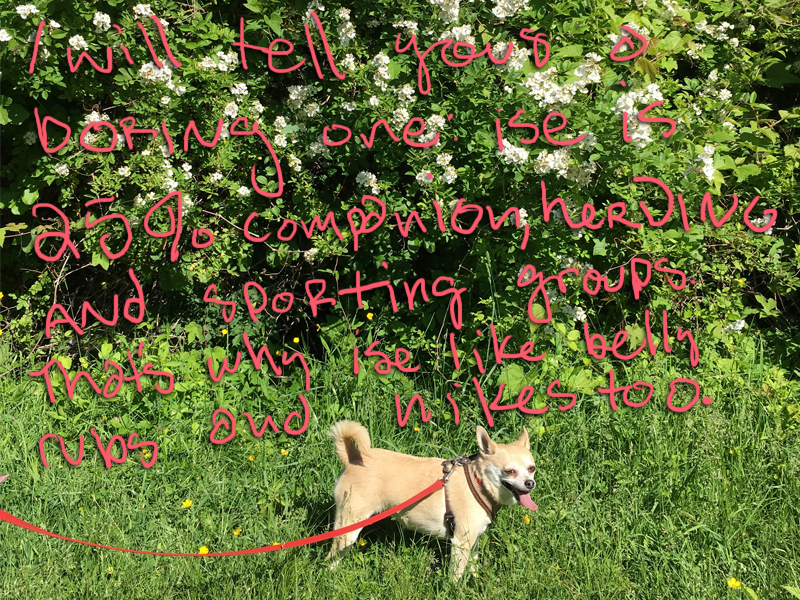 I will tell yous a
boring one: ise is
25% companion, herding
and sporting groups.
that's why ise like belly
rubs and hikes too.